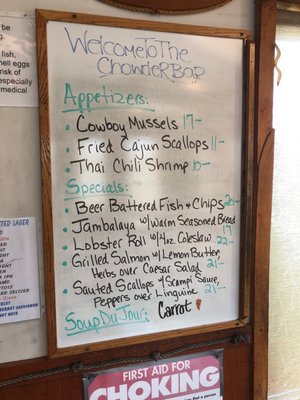 be a
fish,
shell eggs
risk of
especially
medical
Welcome To The
Chowder Bar
Appetizers:
• Cowboy Mussels 17-
• Fried Cajun Scallops 11-
• Thai Chili Shrimp 10-
Specials:
• Beer Battered Fish & Chips 20-
• Jambalaya w/Warm Seasoned Bread 17
• Lobster Roll w/4oz. Coleslaw 22-
• Grilled Salmon w/Lemon Butter,
Herbs over Caesar Salad 21-
• Sauted Scallops w/Scampi Saure,
Peppers over Linguine 21-
Soup Du Jour: Carrot
LAGER
FIRST AID FOR
CHOKING